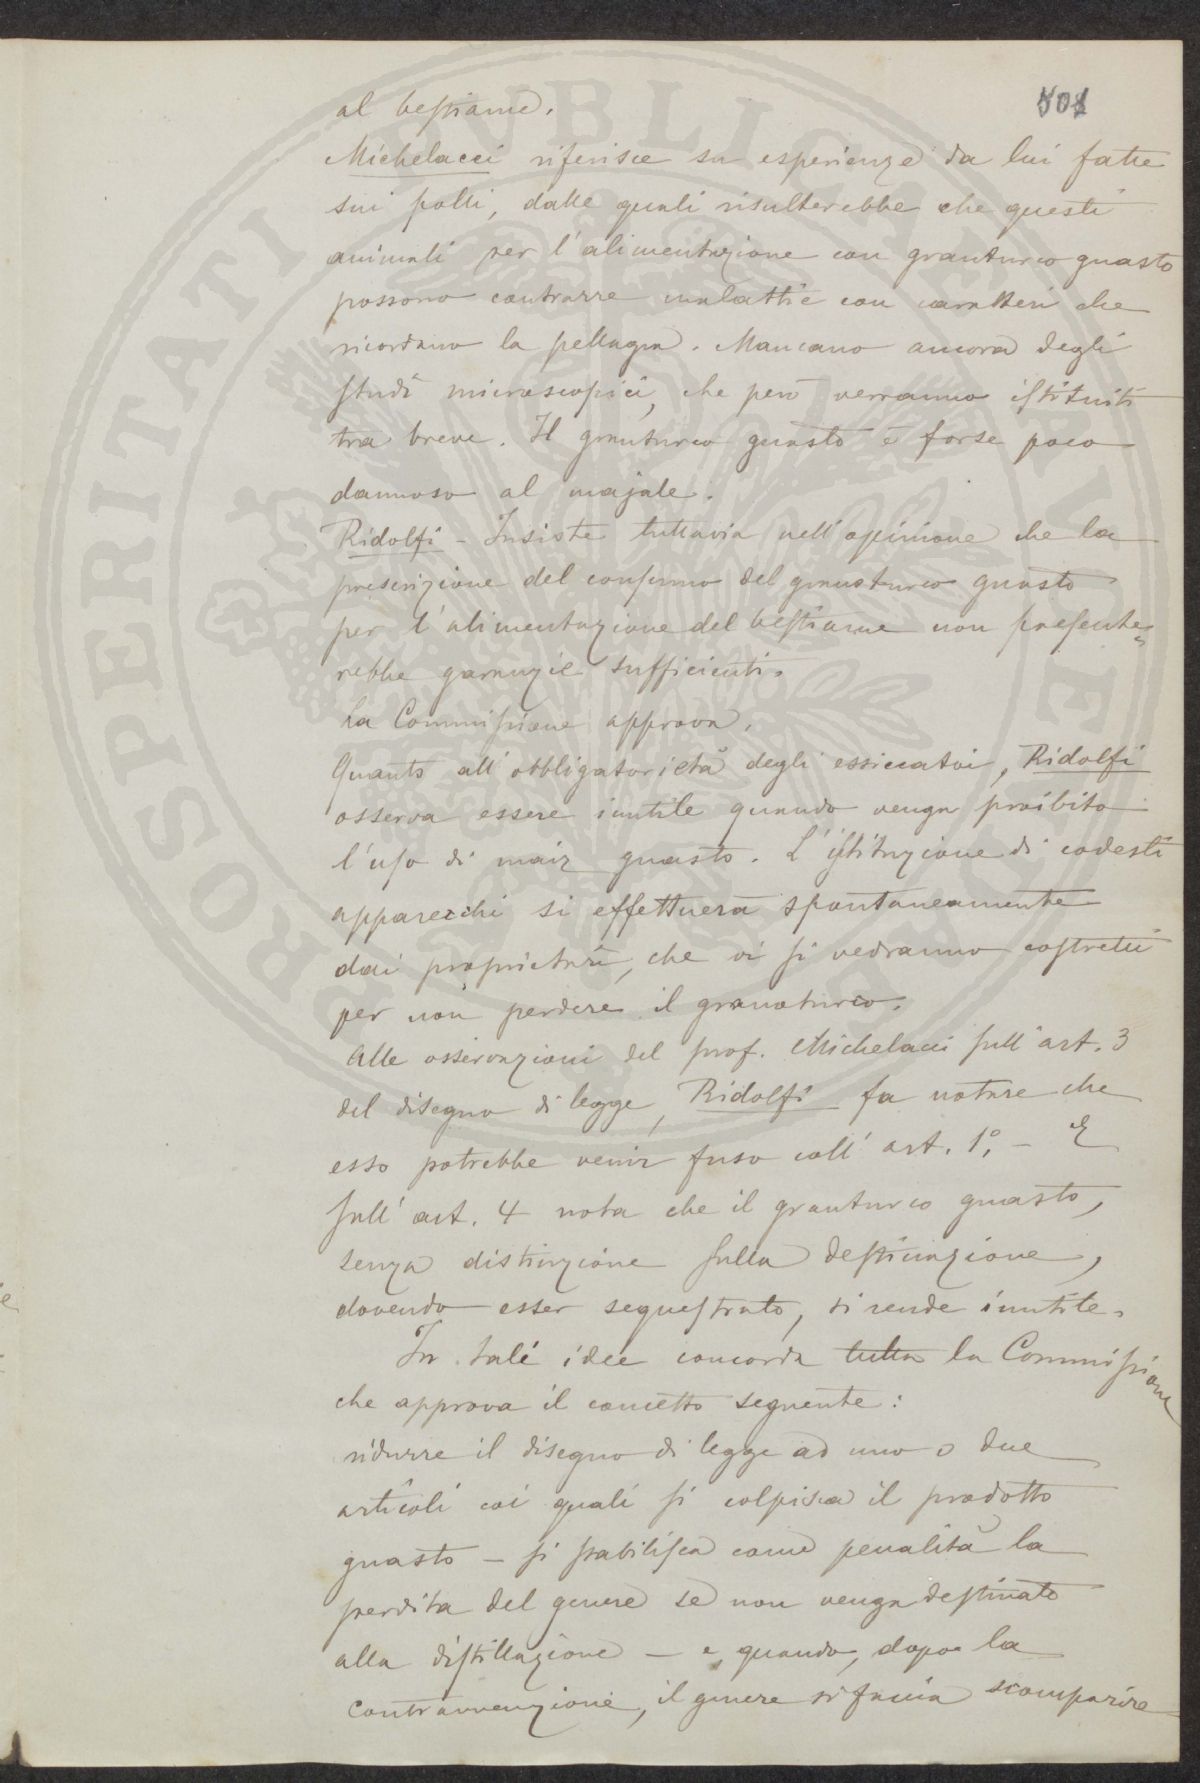 501
al bestiame.
Michelacci riferisce su esperienze da lui fatte
sui polli, dalle quali risulterebbe che questi
animali per l'alimentazione con granturco guasto
possono contrarre malattie con caratteri che
ricordano la pellagra. Mancano ancora degli
studi microscopici, che però verranno istituiti
tra breve. Il granturco guasto è forse poco
dannoso al majale.
Ridolfi - Insiste tuttavia nell'opinione che la
prescrizione del consumo del granoturco guasto
per l'alimentazione del bestiame non presente=
rebbe garanzie sufficienti.
La Commissione approva.
Quanto all'obbligatorietà degli essiccatoi, Ridolfi
osserva essere inutile quando venga proibito
l'uso di maiz guasto. L'istituzione di codesti
apparecchi si effettuerà spontaneamente
dai proprietari, che vi si vedranno costretti
per non perdere il granoturco.
Alle osservazioni del prof. Michelacci sull'art. 3
del disegno di legge, Ridolfi fa notare che
esso potrebbe venir fuso coll'art. 1°. - E
sull'art. 4 nota che il granturco guasto,
senza distinzione sulla destinazione,
dovendo esser sequestrato, si rende inutile.
In tali idee concorda tutta la Commissione
che approva il concetto seguente:
ridurre il disegno di legge ad uno o due
articoli coi quali si colpisca il prodotto
guasto - si stabilisca come penalità la
perdita del genere se non venga destinato
alla distillazione - e, quando, dopo la
contravvenzione, il genere si faccia scomparire
PROSPERITATI PVBLICAE